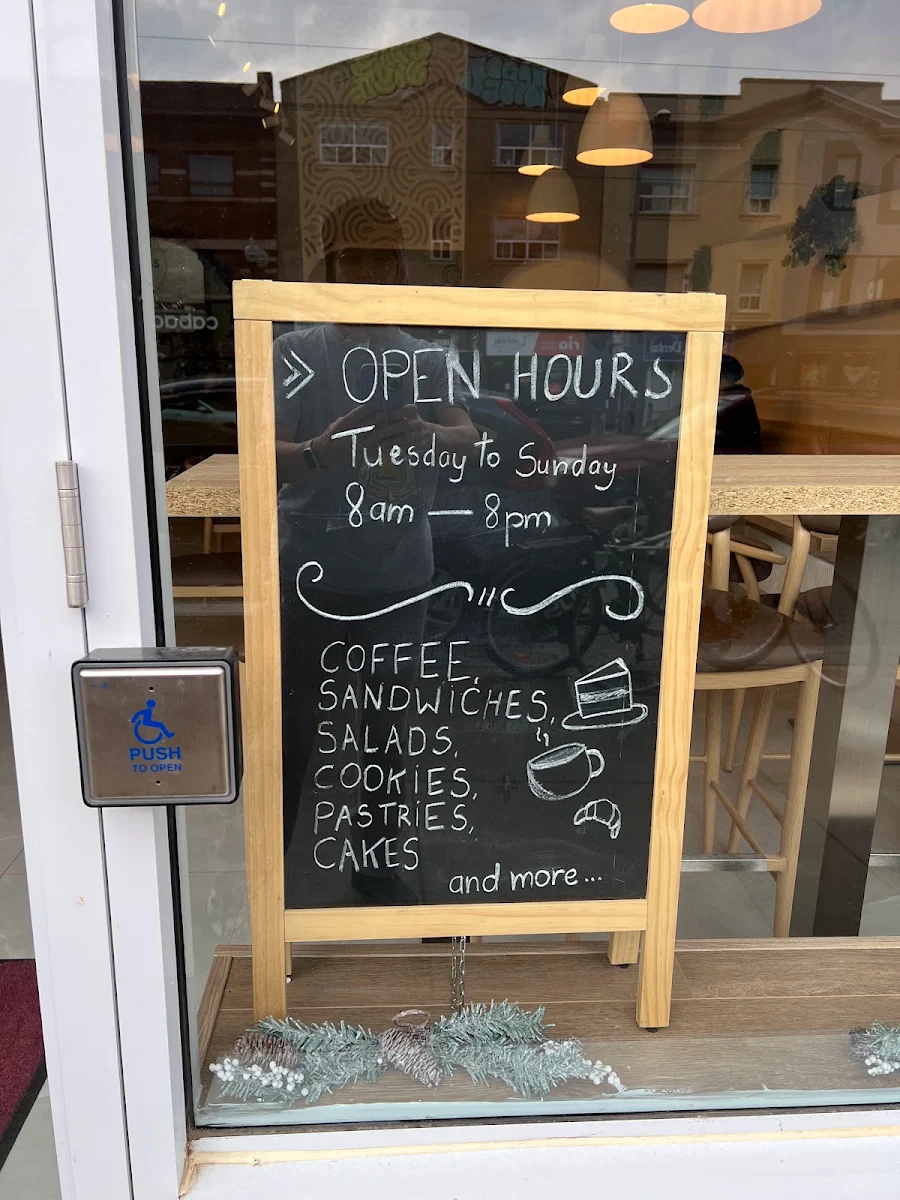 » OPEN HOURS
Tuesday to Sunday
8am — 8pm
COFFEE,
SANDWICHES,
SALADS,
COOKIES,
PASTRIES,
CAKES
and more...
PUSH
TO OPEN